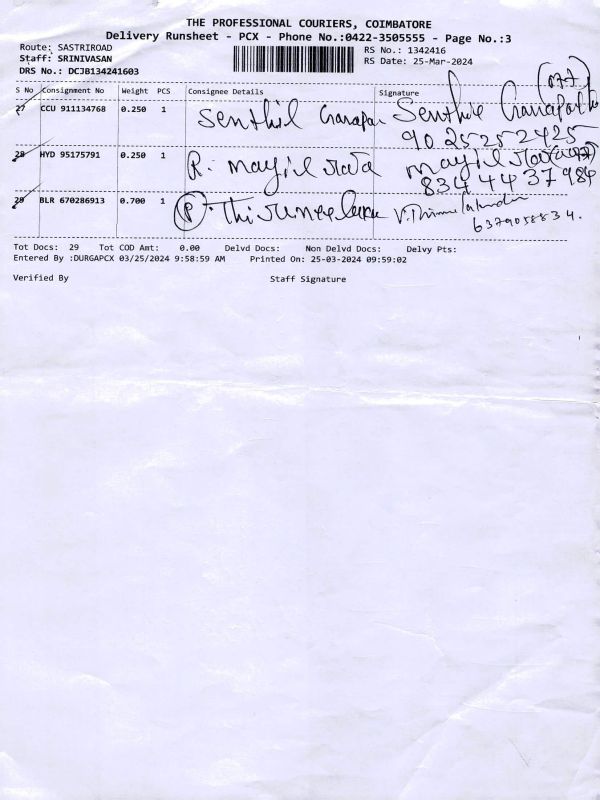 THE PROFESSIONAL COURIERS, COIMBATORE
Delivery Runsheet - PCX - Phone No.:0422-3505555 - Page No.:3
Route: SASTRIROAD
RS No.: 1342416
Staff: SRINIVASAN
RS Date: 25-Mar-2024
DRS No.: DCJB134241603
S No Consignment No Weight PCS Consignee Details Signature
27 CCU 911134768 0.250 1 Senthil Ganapa Senthil Ganapath
9025252425
28 HYD 95175791 0.250 1 R. mayil
8344437984
29 BLR 670286913 0.700 1 P.
6379058834.
Tot Docs: 29 Tot COD Amt: 0.00 Delvd Docs: Non Delvd Docs: Delvy Pts:
Entered By :DURGAPCX 03/25/2024 9:58:59 AM Printed On: 25-03-2024 09:59:02
Verified By Staff Signature